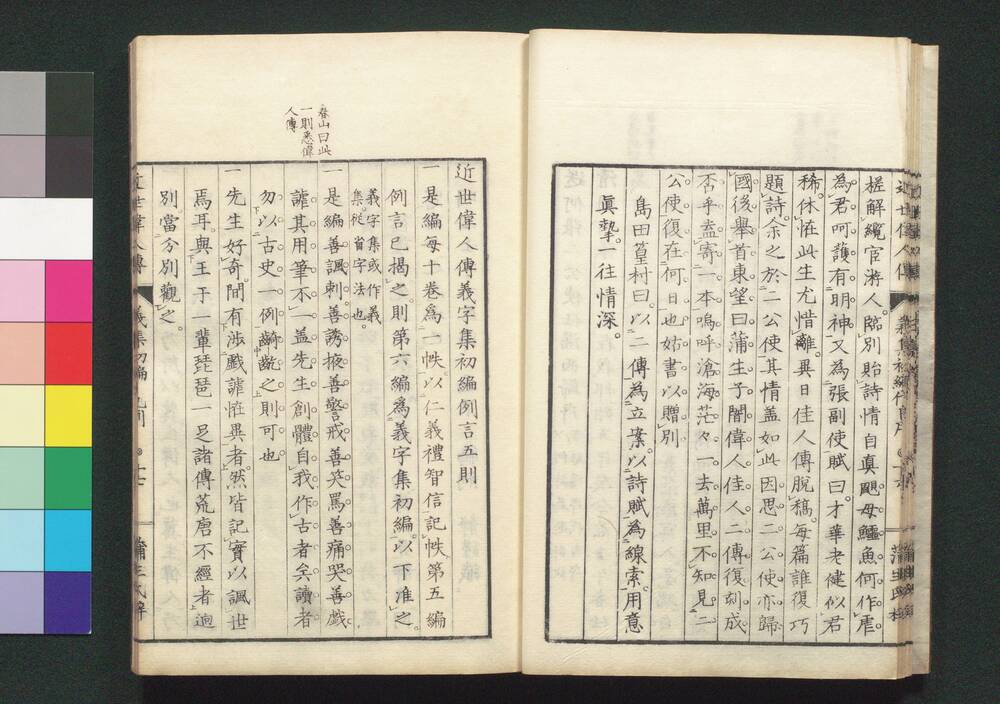 槎解纜官游人。臨別貽詩情自眞。颶母鱷魚何作虐。
為君呵護有明神。又為張副使賦曰。才華老健似君
稀。休恠此生尤惜離。異日佳人傳脫稿。每篇誰復巧
題詩。余之於二公使其情盖如此因思二公使亦歸
國後。擧首東望曰。蒲生子闇偉人佳人二傳復刻成
否乎。盍寄一本。嗚呼滄海茫々。一去萬里。不知見二
公使復在何日也。姑書以贈別
島田篁村曰。以二傳為立案。以詩賦為線索。用意
眞摯。一往情深。
近世偉人傳義字集初編例言五則
一是編每十卷為一帙以仁義禮智信記帙第五編
例言已揭之則第六編爲義字集初編。以下准之。
義字集或作義
集。從省字法也。
一是編善諷刺善誘掖善警戒善笑罵善痛哭善戲
謔其用筆不一盖先生創體自我作古者矣讀者
勿以古史一例齮齕之則可也
一先生好奇。間有涉戲謔恠異者。然皆記實以諷世
焉耳。與王于一輩琵琶一足諸傳荒唐不經者迥
別當分別觀之。
春山曰此
一則悉偉
人傳
近世偉人傳
義集初編
蒲生氏梓